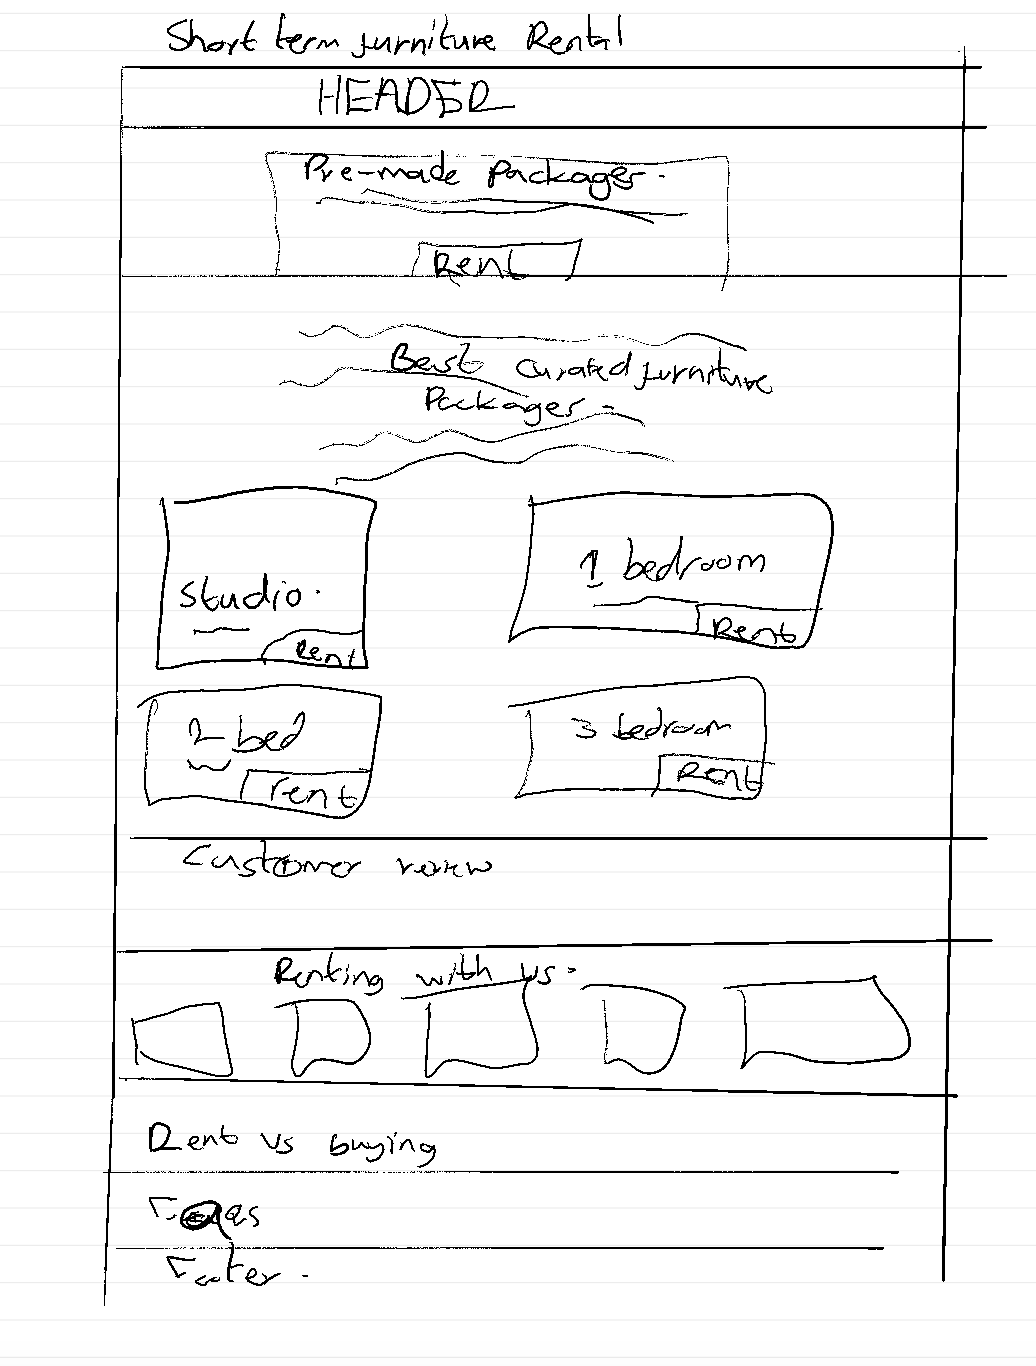 Short term furniture Rental
HEADER
Pre-made Packages.
Rent
Best curated furniture
Packages
studio.
Rent
1 bedroom
Rent
2 bed
rent
3 bedroom
Rent
Customer review
Renting with us.
Rent vs buying
Faqs
Footer.